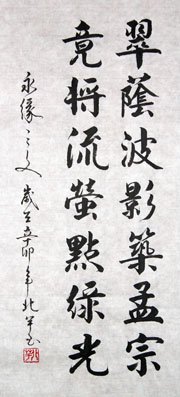 翠蔭波影築孟宗
竟将流螢點綠光
永緣之文 歲在辛卯年